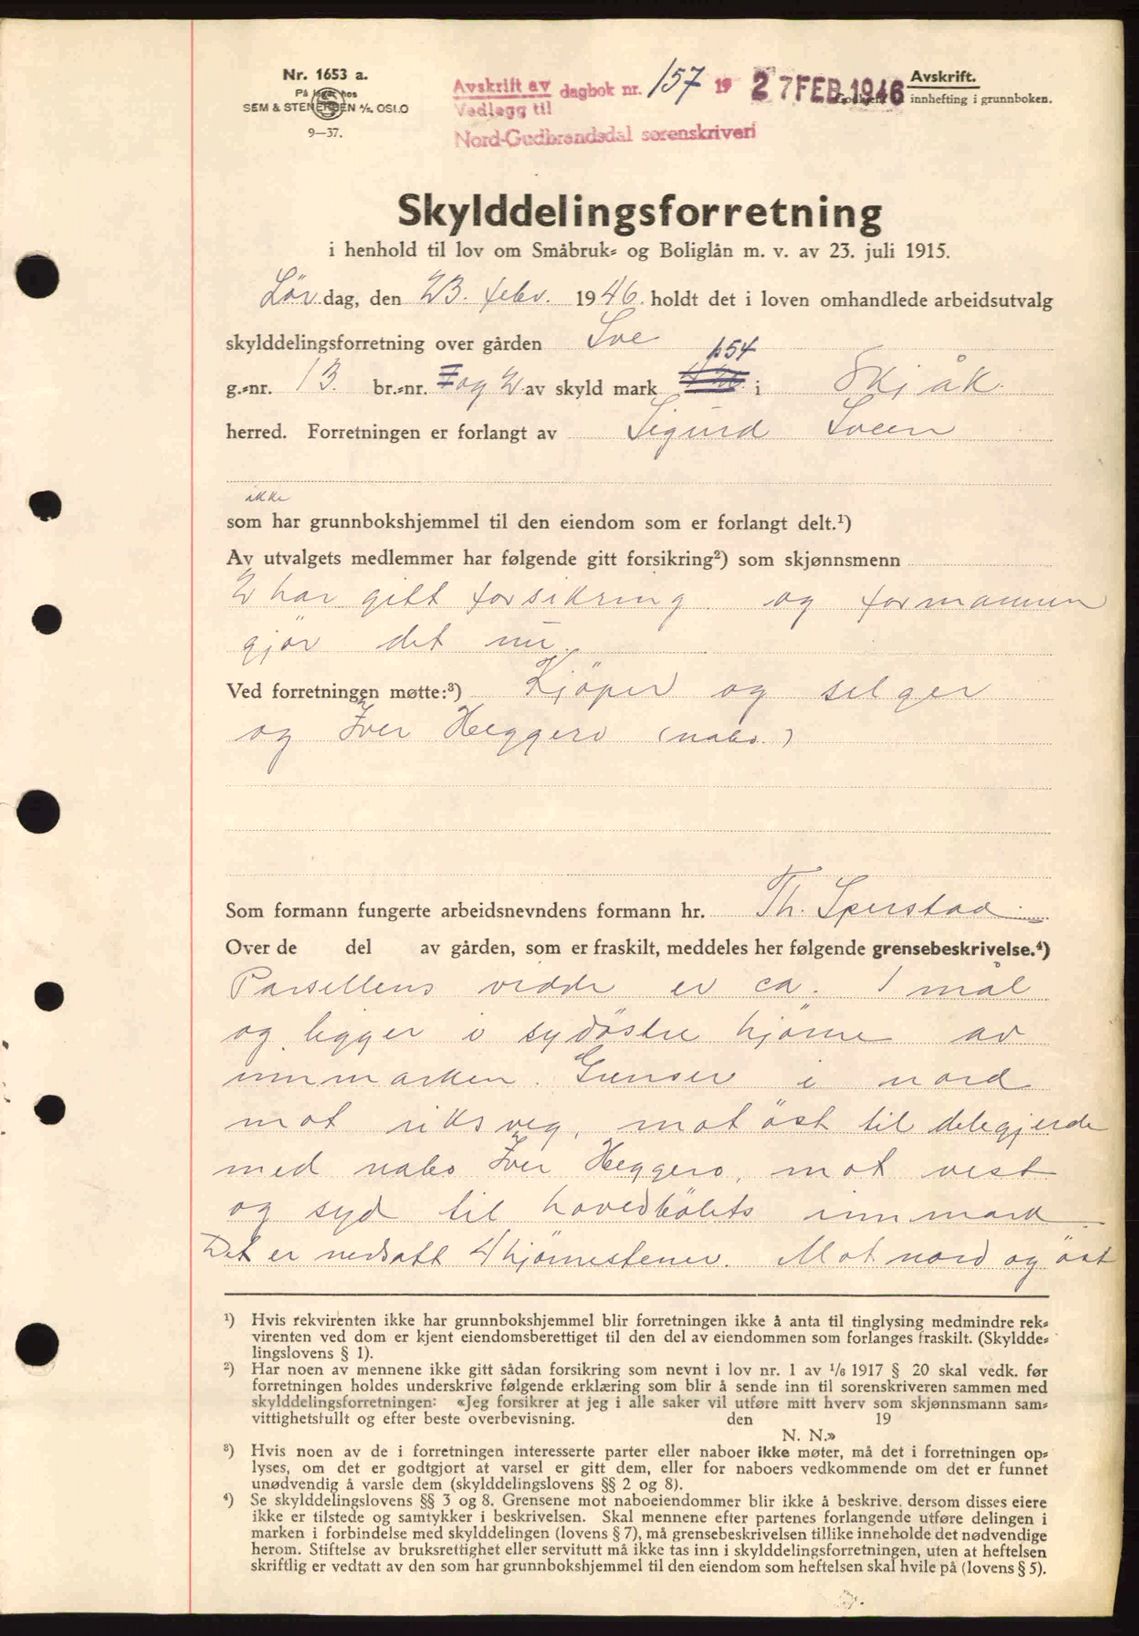 Nr. 1653 a.
På lager hos
SEM & STENERSEN A/S. OSLO
9—37.
Avskrift av dagbok nr. 157 19 27 FEB 1946
Vedlegg til
Nord-Gudbrandsdal sorenskriveri
Avskrift.
innhefting i grunnboken.
Skylddelingsforretning
i henhold til lov om Småbruk- og Boliglån m. v. av 23. juli 1915.
Lørdag, den 23. febr. 1946. holdt det i loven omhandlede arbeidsutvalg
skylddelingsforretning over gården Sve
1.54
g.-nr. 13. br.-nr. og 2 av skyld mark i Skjåk.
herred. Forretningen er forlangt av Sigurd Sveen
ikke
som har grunnbokshjemmel til den eiendom som er forlangt delt.¹)
Av utvalgets medlemmer har følgende gitt forsikring²) som skjønnsmenn
2 har gitt forsikring og formannen
gjør det nu.
Ved forretningen møtte:³) Kjøper og selger
og Iver Heggerø (nabo.)
Som formann fungerte arbeidsnevndens formann hr. Th. Sperstad
Over de del av gården, som er fraskilt, meddeles her følgende grensebeskrivelse.⁴)
Parsellens vidde er ca. 1 mål
og ligger i sydøstre hjørne av
innmarken. Grenser i nord
mot riksveg, mot øst til delegjerde
med nabo Iver Heggerø, mot vest
og syd til hovedbølets innmark.
Det er nedsatt 4 hjørnestener. Mot nord og øst
¹) Hvis rekvirenten ikke har grunnbokshjemmel blir forretningen ikke å anta til tinglysing medmindre rek-
virenten ved dom er kjent eiendomsberettiget til den del av eiendommen som forlanges fraskilt. (Skyldde-
lingslovens § 1).
²) Har noen av mennene ikke gitt sådan forsikring som nevnt i lov nr. 1 av 1/6 1917 § 20 skal vedk. før
forretningen holdes underskrive følgende erklæring som blir å sende inn til sorenskriveren sammen med
skylddelingsforretningen: «Jeg forsikrer at jeg i alle saker vil utføre mitt hverv som skjønnsmann sam-
vittighetsfullt og efter beste overbevisning. den 19
N. N.»
³) Hvis noen av de i forretningen interesserte parter eller naboer ikke møter, må det i forretningen op-
lyses, om det er godtgjort at varsel er gitt dem, eller for naboers vedkommende om det er funnet
unødvendig å varsle dem (skylddelingslovens §§ 2 og 8).
⁴) Se skylddelingslovens §§ 3 og 8. Grensene mot naboeiendommer blir ikke å beskrive, dersom disses eiere
ikke er tilstede og samtykker i beskrivelsen. Skal mennene efter partenes forlangende utføre delingen i
marken i forbindelse med skylddelingen (lovens § 7), må grensebeskrivelsen tillike inneholde det nødvendige
herom. Stiftelse av bruksrettighet eller servitutt må ikke tas inn i skylddelingsforretningen, uten at heftelsen
skriftlig er vedtatt av den som har grunnbokshjemmel til den eiendom som heftelsen skal hvile på (lovens § 5).